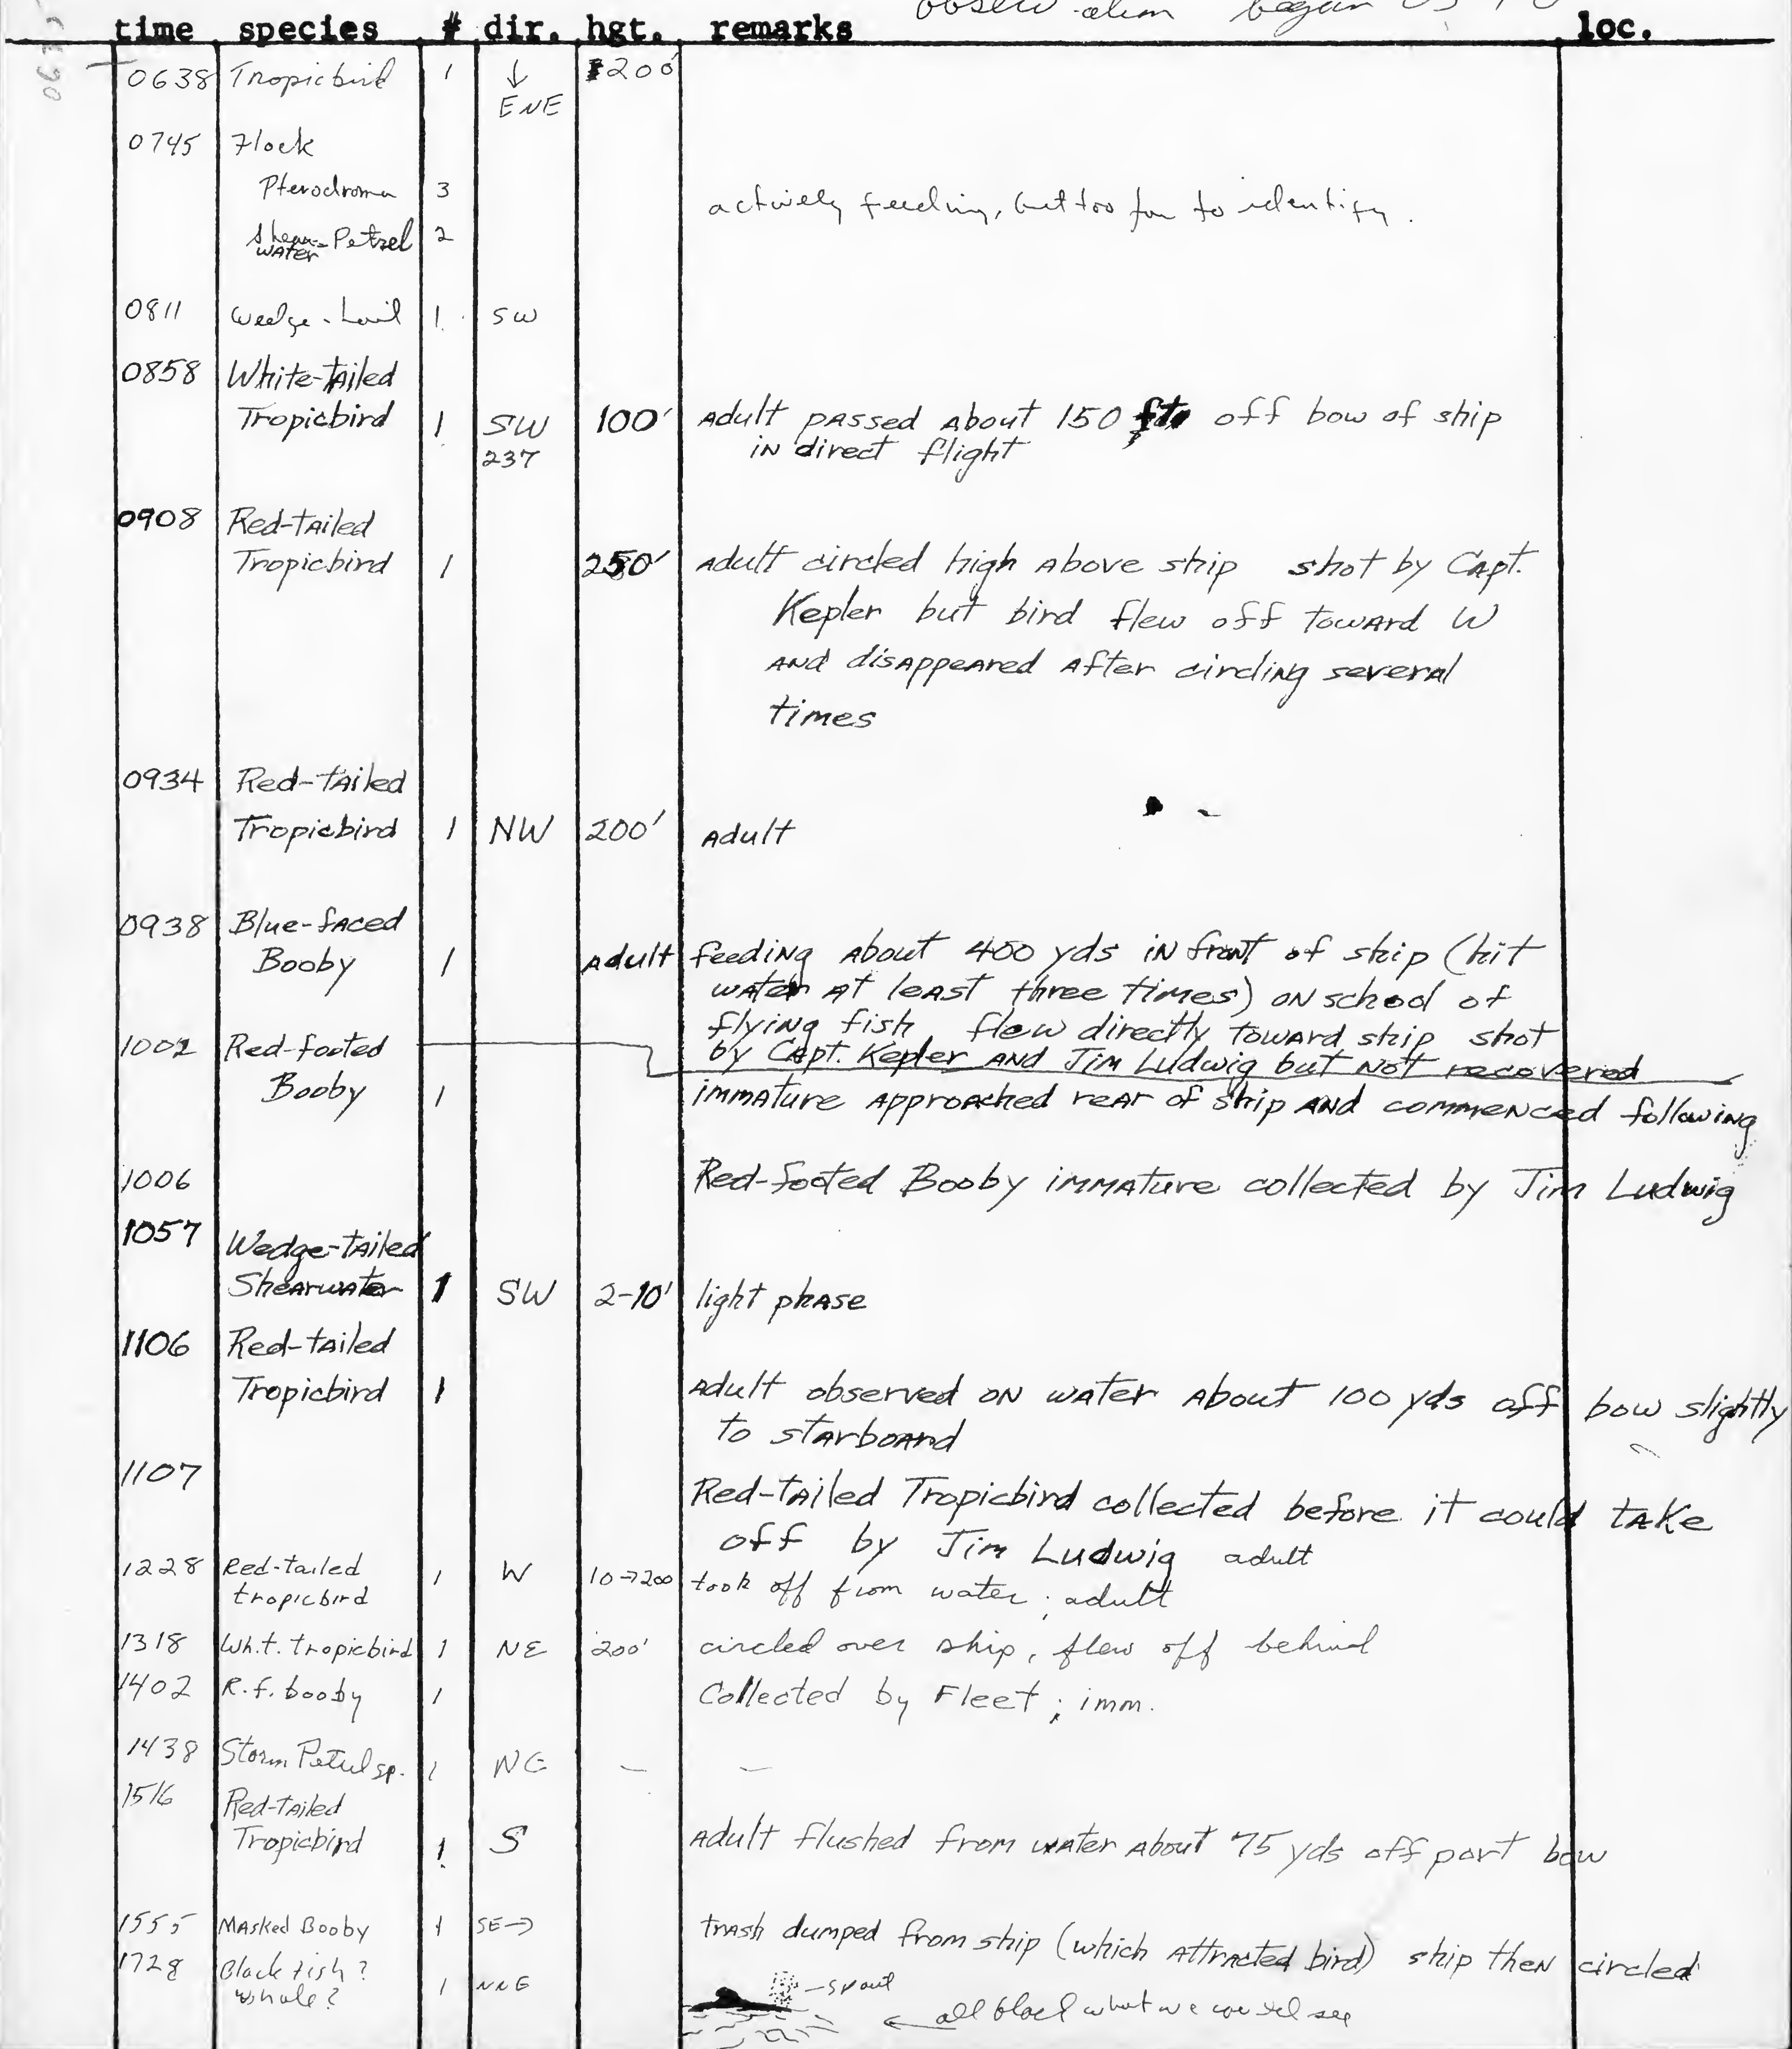 observation began
time species # dir. hgt. remarks loc.
0638 Tropicbird 1 ↓ 200'
ENE
0745 Flock
Pterodroma 3
actively feeding, but too far to identify.
Shear-water - Petrel 2
0811 Wedge-tail 1 SW
0858 White-tailed
Tropicbird 1 SW 100' Adult passed about 150 ft off bow of ship
237 in direct flight
0908 Red-tailed
Tropicbird 1 250' Adult circled high above ship shot by Capt.
Kepler but bird flew off toward W
and disappeared after circling several
times
0934 Red-tailed
Tropicbird 1 NW 200' Adult
0938 Blue-faced
Booby 1 Adult feeding about 400 yds in front of ship (hit
water at least three times) on school of
flying fish flew directly toward ship shot
by Capt. Kepler and Jim Ludwig but not recovered
1002 Red-footed
Booby 1 immature approached rear of ship and commenced following
1006 Red-footed Booby immature collected by Jim Ludwig
1057 Wedge-tailed
Shearwater 1 SW 2-10' light phase
1106 Red-tailed
Tropicbird 1 Adult observed on water about 100 yds off bow slightly
to starboard
1107 Red-tailed Tropicbird collected before it could take
off by Jim Ludwig adult
1228 Red-tailed
tropicbird 1 W 10→200 took off from water; adult
1318 Wh.t. tropicbird 1 NE 200' circled over ship, flew off behind
1402 R.f. booby 1 Collected by Fleet; imm.
1438 Storm Petrel sp. 1 NE — —
1516 Red-tailed
Tropicbird 1 S Adult flushed from water about 75 yds off port bow
1555 Masked Booby 1 SE→ trash dumped from ship (which attracted bird) ship then circled
1728 Blackfish?
Whale? 1 NNE - spout
← all black what we could see